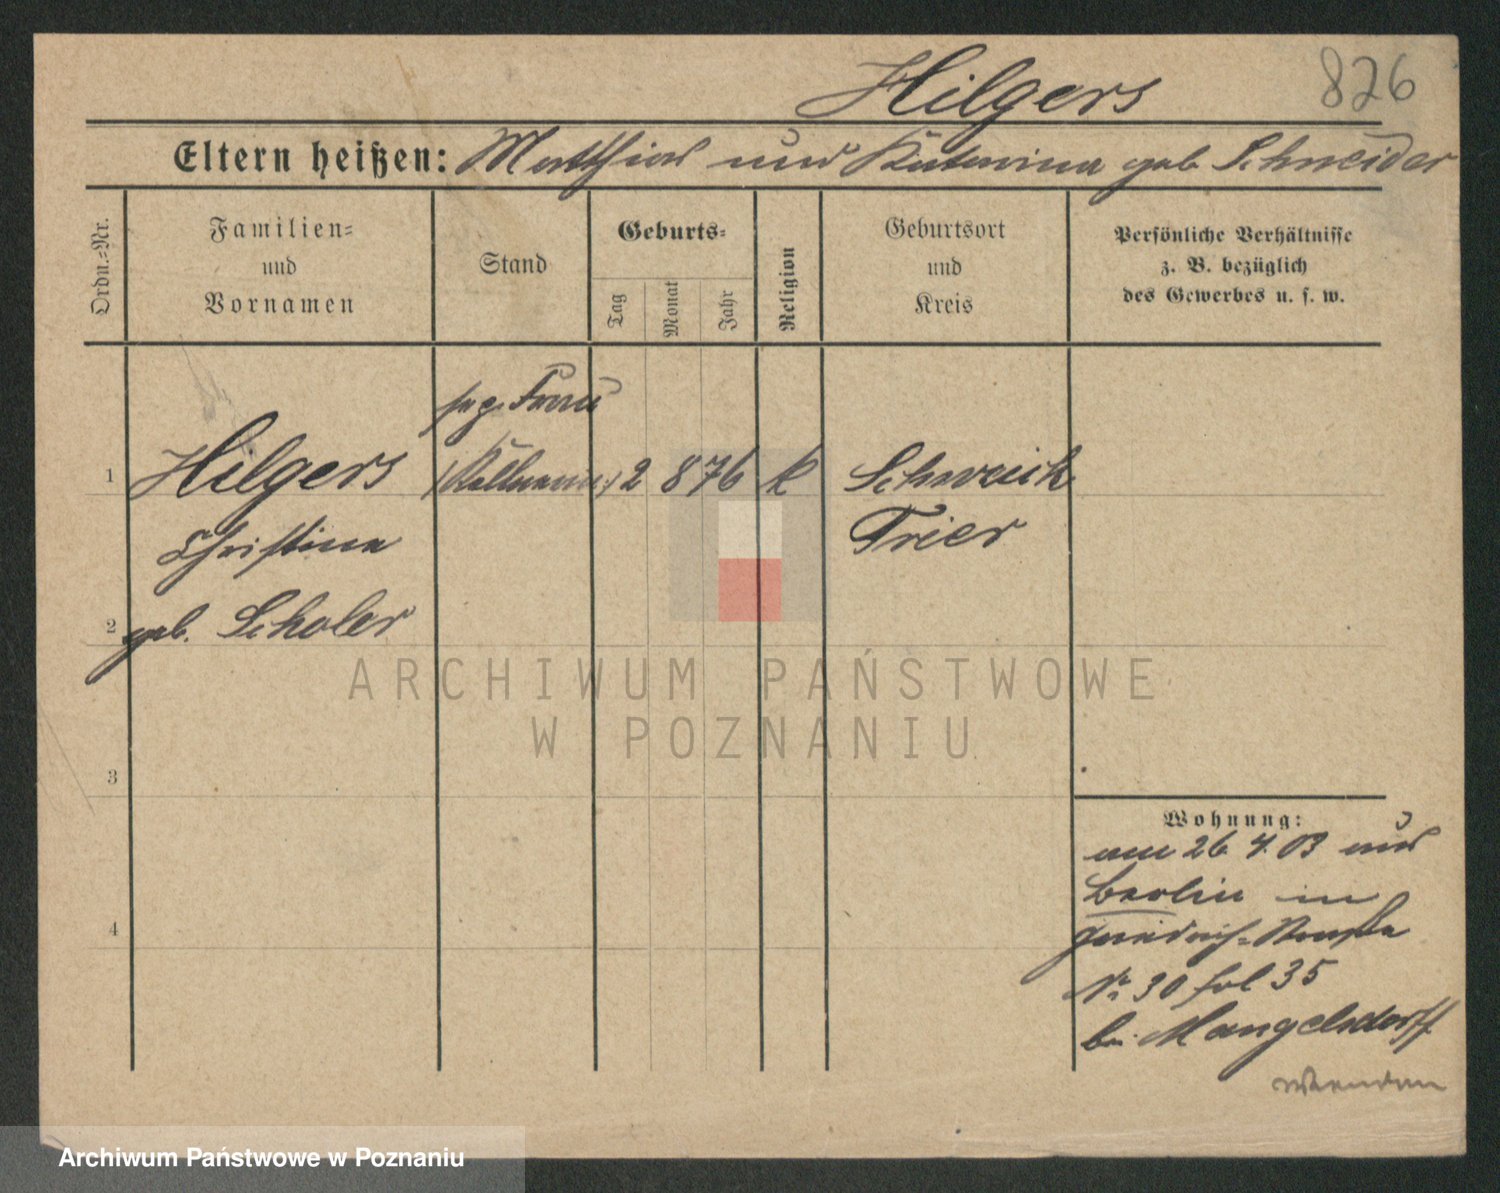 Hilgers 826
Eltern heißen: Matthias und Katharina geb Schneider
Ordn.-Nr.
Familien-
und
Vornamen
Stand
Geburts-
Tag
Monat
Jahr
Religion
Geburtsort
und
Kreis
Persönliche Verhältnisse
z. B. bezüglich
des Gewerbes u. s. w.
Frau
1 Hilgers 2 8 76 k Schweich
Christina Trier
2 geb. Scholer
ARCHIWUM PAŃSTWOWE
W POZNANIU
3
Wohnung:
am 26 4. 03 aus
Berlin in
4
No 30 35
bei Mangelsdorff
wenden
Archiwum Państwowe w Poznaniu